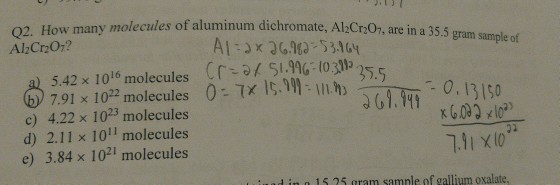 Q2. How many molecules of aluminum dichromate, Al2Cr2O7, are in a 35.5 gram sample of
Al2Cr2O7?
Al = 2x 26.982 = 53.964
Cr = 2x 51.996 = 103.992
O = 7x 15.999 = 111.993
35.5
269.949
= 0.13150
x 6.022 x 10^23
7.91 x 10^22
a) 5.42 × 10^16 molecules
b) 7.91 × 10^22 molecules
c) 4.22 × 10^23 molecules
d) 2.11 × 10^11 molecules
e) 3.84 × 10^21 molecules
in a 15.25 gram sample of gallium oxalate,